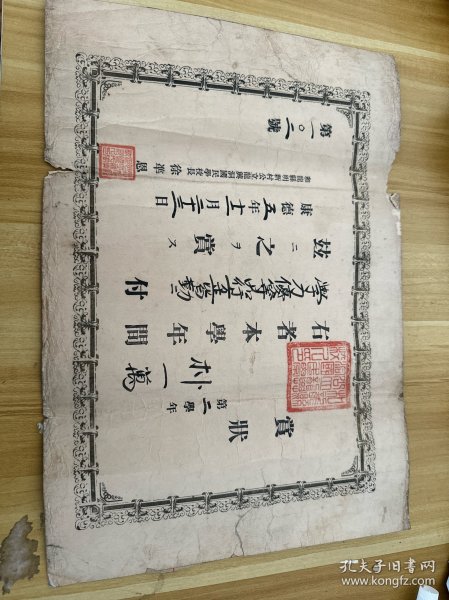 賞狀
第二學年
朴一萬
右者本學年間
學力優等品行皆勤付
茲ニ之ヲ賞ス
康德五年十二月二十三日
明新村公立國民學校長
第一〇二號
孔夫子旧书网
www.kongfz.com